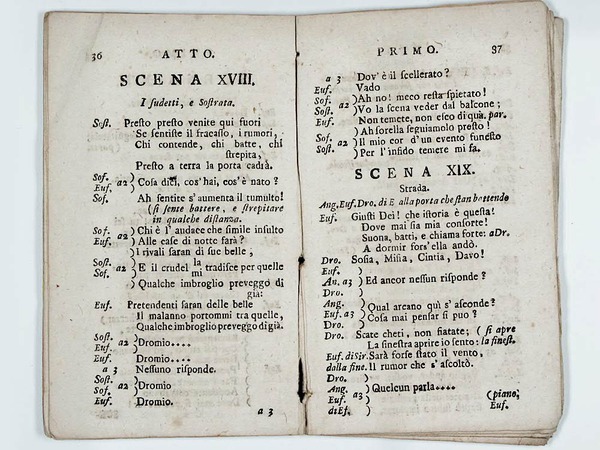 36 ATTO.
SCENA XVIII.
I sudetti, e Sostrata.
Sost. Presto presto venite qui fuori
Se sentiste il fracasso, i rumori,
Chi contende, chi batte, chi
strepita,
Presto a terra la porta cadrà.
Sof. ) a2 ) Cosa dici, cos'hai, cos'è nato ?
Euf. )
Sof. Ah sentire s'aumenta il tumulto!
(si sente battere, e strepitare
in qualche distanza.
Sof. ) a2 ) Chi è l'audace che simile insulto
Euf. ) Alle case di notte farà ?
) I rivali saran di sue belle ,
Sost. ) a2 ) E il crudel la mi tradisce per quelle
Sof.
) Qualche imbroglio preveggo di
già:
Euf. Pretendenti saran delle belle
Il malanno portommi tra quelle,
Qualche imbroglio preveggo di già.
Sost. ) a2 ) Dromio....
Euf. )
Euf. Dromio....
a 3 Nessuno risponde.
Sost. ) a2 ) Dromio
Sof. )
Euf. Dromio.
a 3
PRIMO. 37
a 3 Dov'è il scellerato ?
Euf. Vado
Sof. ) a2 ) Ah no! meco resta spietato !
Sost. ) Vo la scena veder dal balcone ;
Euf. Non temete, non esco di quà. par.
) Ah sorella seguiamolo presto !
Sof. ) a2 ) Il mio cor d'un evento funesto
Sost. ) Per l'infido temere mi fa.
SCENA XIX.
Strada.
Ang. Euf. Dro. di E alla porta che stan battendo
Euf. Giusti Dei! che istoria è questa!
Dove mai sia mia consorte!
Suona, batti, e chiama forte: a Dr.
A dormir fors'ella andò.
Dro. Sosia, Misia, Cintia, Davo!
Euf. )
An. a3 ) Ed ancor nessun risponde ?
Dro. )
Ang. ) Qual arcano quì s'asconde?
Euf. a3 ) Cosa mai pensar si può ?
Dro. )
Dro. Scate cheti, non fiatate; ( si apre
La finestra aprire io sento: la finest.
Euf. di Sir. Sarà forse stato il vento,
dalla fine. Il rumor che s'ascoltò.
Dro. )
Ang. ) a3 ) Quelcun parla....
Euf. ) (piano;
di Ef. ) Euf.